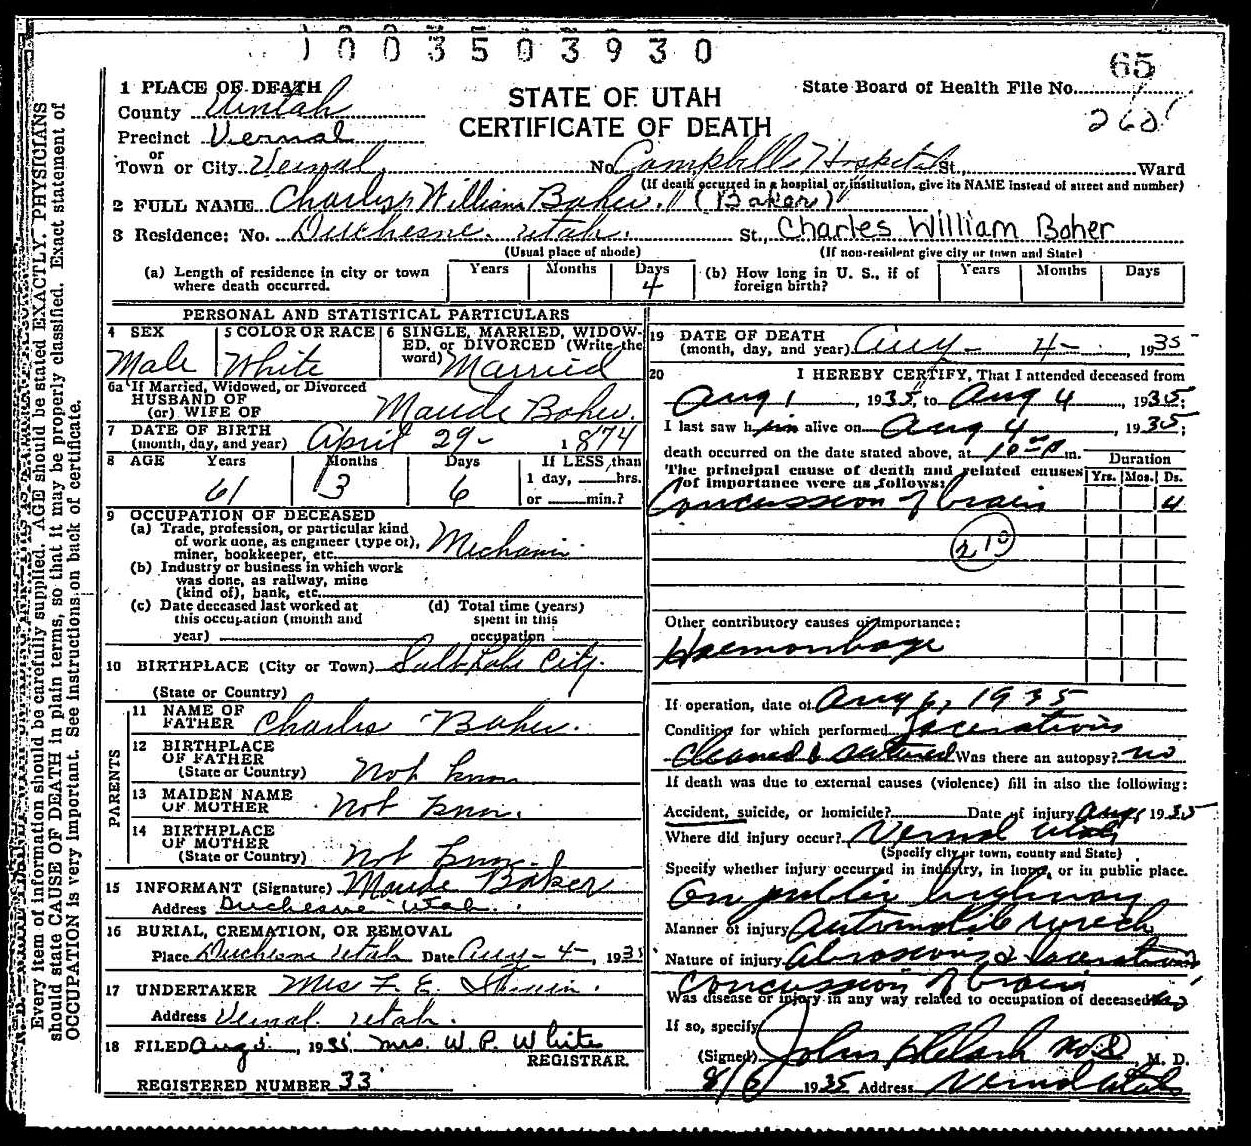 1003503930
65
1 PLACE OF DEATH
State Board of Health File No.
STATE OF UTAH
County Uintah
262
CERTIFICATE OF DEATH
Precinct Vernal
or
Town or City Vernal No. Campbells Hospital St., Ward
(If death occurred in a hospital or institution, give its NAME instead of street and number)
2 FULL NAME Charles William Boher. "(Baker)"
3 Residence: No. Duchesne. Utah. St., Charles William Boher
(Usual place of abode) (If non-resident give city or town and State)
(a) Length of residence in city or town where death occurred. Years Months Days 4
(b) How long in U. S., if of foreign birth? Years Months Days
PERSONAL AND STATISTICAL PARTICULARS
4 SEX Male
5 COLOR OR RACE White
6 SINGLE, MARRIED, WIDOW-
ED, or DIVORCED (Write the
word) Married
6a If Married, Widowed, or Divorced
HUSBAND OF
(or) WIFE OF Maude Boher.
7 DATE OF BIRTH
(month, day, and year) April 29- 1874
8 AGE Years Months Days If LESS than
61 3 6 1 day, hrs.
or min.?
9 OCCUPATION OF DECEASED
(a) Trade, profession, or particular kind
of work done, as engineer (type of),
miner, bookkeeper, etc. Mechanic
(b) Industry or business in which work
was done, as railway, mine
(kind of), bank, etc.
(c) Date deceased last worked at
this occupation (month and
year)
(d) Total time (years)
spent in this
occupation
10 BIRTHPLACE (City or Town) Salt Lake City.
(State or Country)
PARENTS
11 NAME OF
FATHER Charles Boher.
12 BIRTHPLACE
OF FATHER
(State or Country) Not know
13 MAIDEN NAME
OF MOTHER Not know.
14 BIRTHPLACE
OF MOTHER
(State or Country) Not know.
15 INFORMANT (Signature) Maude Baker
Address Duchesne Utah.
16 BURIAL, CREMATION, OR REMOVAL
Place Duchesne Utah Date Aug - 4 -, 1935
17 UNDERTAKER Mrs F. E.
Address Vernal. Utah.
18 FILED Aug 1935 Mrs. W. P. White
REGISTRAR.
REGISTERED NUMBER 33
19 DATE OF DEATH
(month, day, and year) Aug - 4 -, 1935
20 I HEREBY CERTIFY, That I attended deceased from
Aug 1, 1935, to Aug 4, 1935;
I last saw him alive on Aug 4, 1935;
death occurred on the date stated above, at 10 00 P m.
The principal cause of death and related causes
of importance were as follows:
Duration
Yrs. Mos. Ds.
Concussion of brain 4
210
Other contributory causes of importance:
Haemorrhage
If operation, date of Aug 6, 1935
Condition for which performed Lacerations
cleaned & sutured Was there an autopsy? no
If death was due to external causes (violence) fill in also the following:
Accident, suicide, or homicide? Date of injury Aug 1 1935
Where did injury occur? Vernal Utah
(Specify city or town, county and State)
Specify whether injury occurred in industry, in home, or in public place.
On public highway
Manner of injury Automobile wreck
Nature of injury Abrasions & Lacerations
Concussion of brain
Was disease or injury in any way related to occupation of deceased? no
If so, specify
(Signed) John M. D.
8/6 1935 Address Vernal Utah
Every item of information should be carefully supplied. AGE should be stated EXACTLY. PHYSICIANS
should state CAUSE OF DEATH in plain terms, so that it may be properly classified. Exact statement of
OCCUPATION is very important. See instructions on back of certificate.